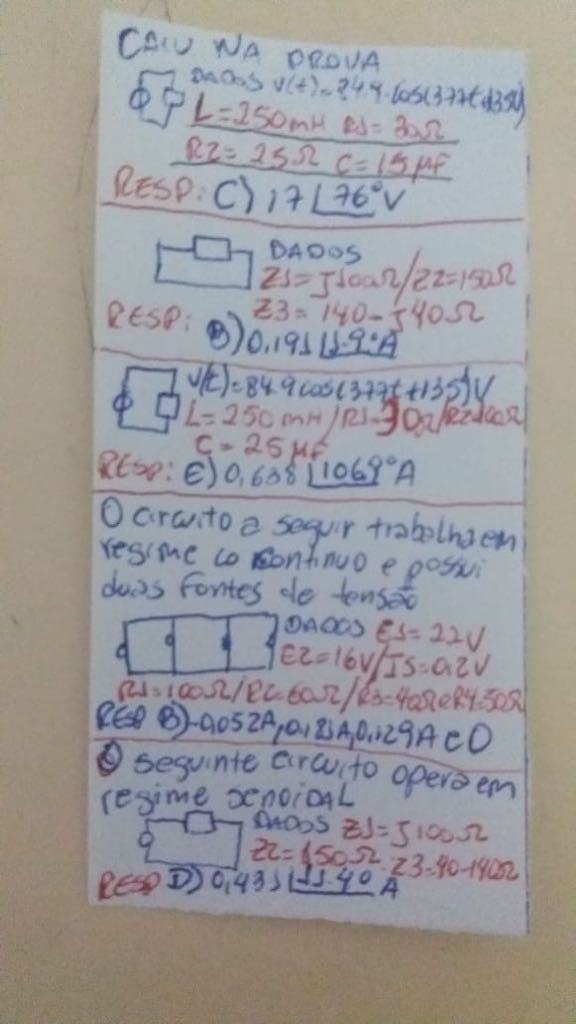 CAIU NA PROVA
DADOS v(t)=84.9.cos(377t+135)V
L=250mH R1=30Ω
R2=25Ω C=15μF
RESP: C) 17∠76°V
DADOS
Z1=J100Ω/Z2=150Ω
Z3=140-J40Ω
RESP: B) 0,191∠1.9°A
v(t)=84.9cos(377t+135)V
L=250mH/R1=30Ω/R2=100Ω
C=25μF
RESP: E) 0,638∠106.9°A
O circuito a seguir trabalha em
regime co continuo e possui
duas fontes de tensão
DADOS E1=22V
E2=16V/I1=0,2V
R1=100Ω/R2=60Ω/R3=40Ω e R4=50Ω
RESP B)-0,052A,0,181A,0,129A e 0
O seguinte circuito opera em
regime senoidal
DADOS Z1=J100Ω
Z2=150Ω Z3=40-140Ω
RESP D) 0,431∠11.40 A